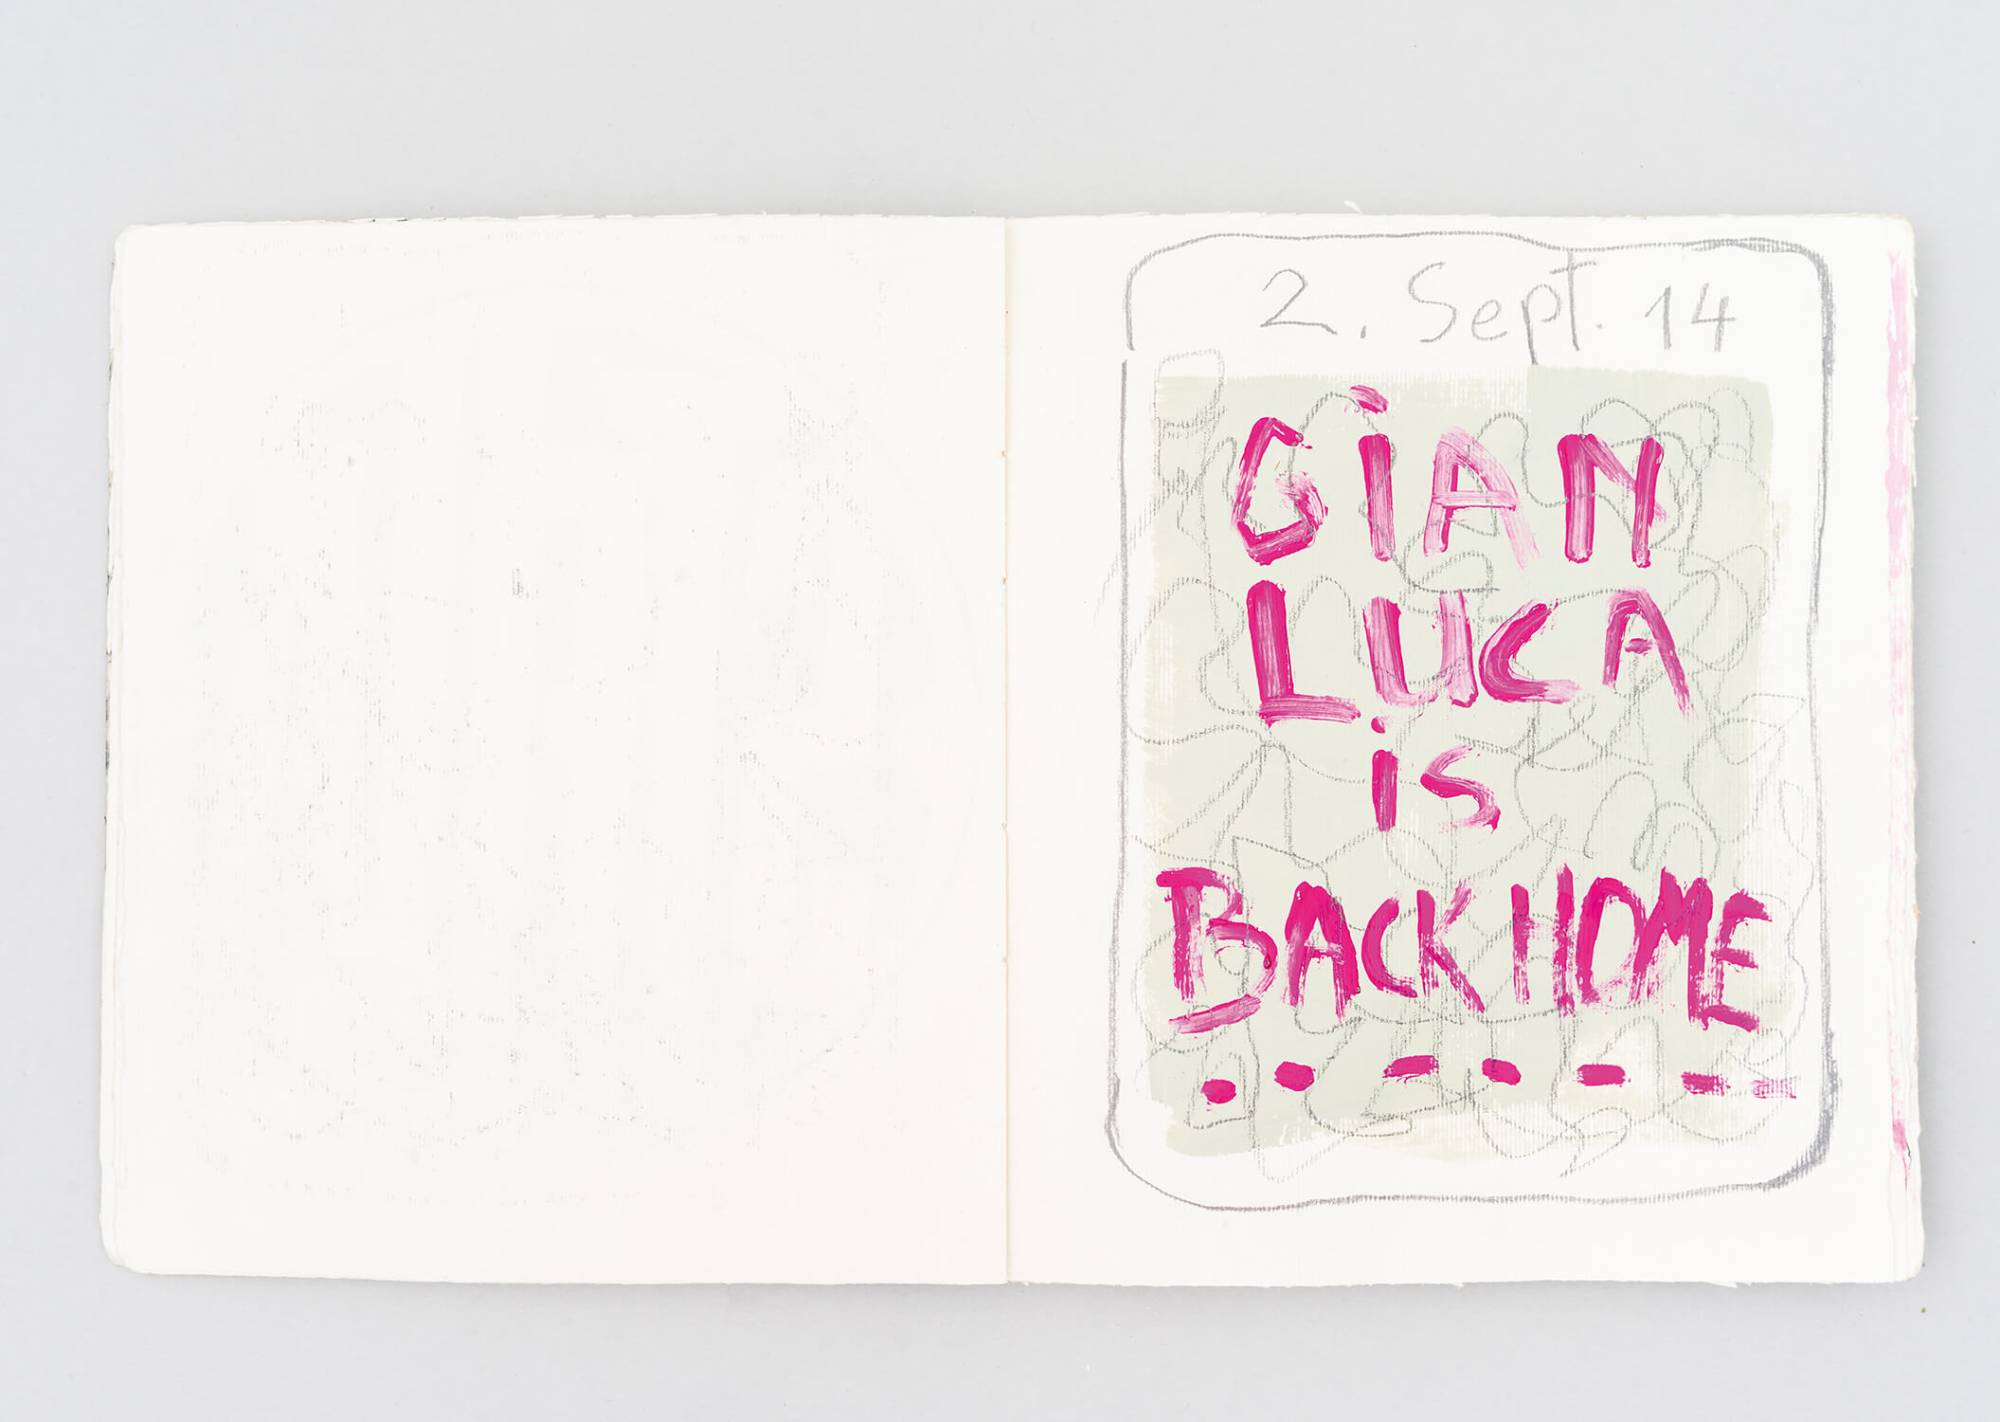 2. Sept. 14
GiAN
LUCA
is
BACK HOME